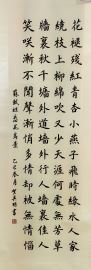 花褪殘紅青杏小燕子飛時綠水人家
繞枝上柳綿吹又少天涯何處無芳草
牆裏秋千牆外道牆外行人牆裏佳人
笑咲漸不聞聲漸悄多情却被無情惱
蘇軾蝶恋花春景